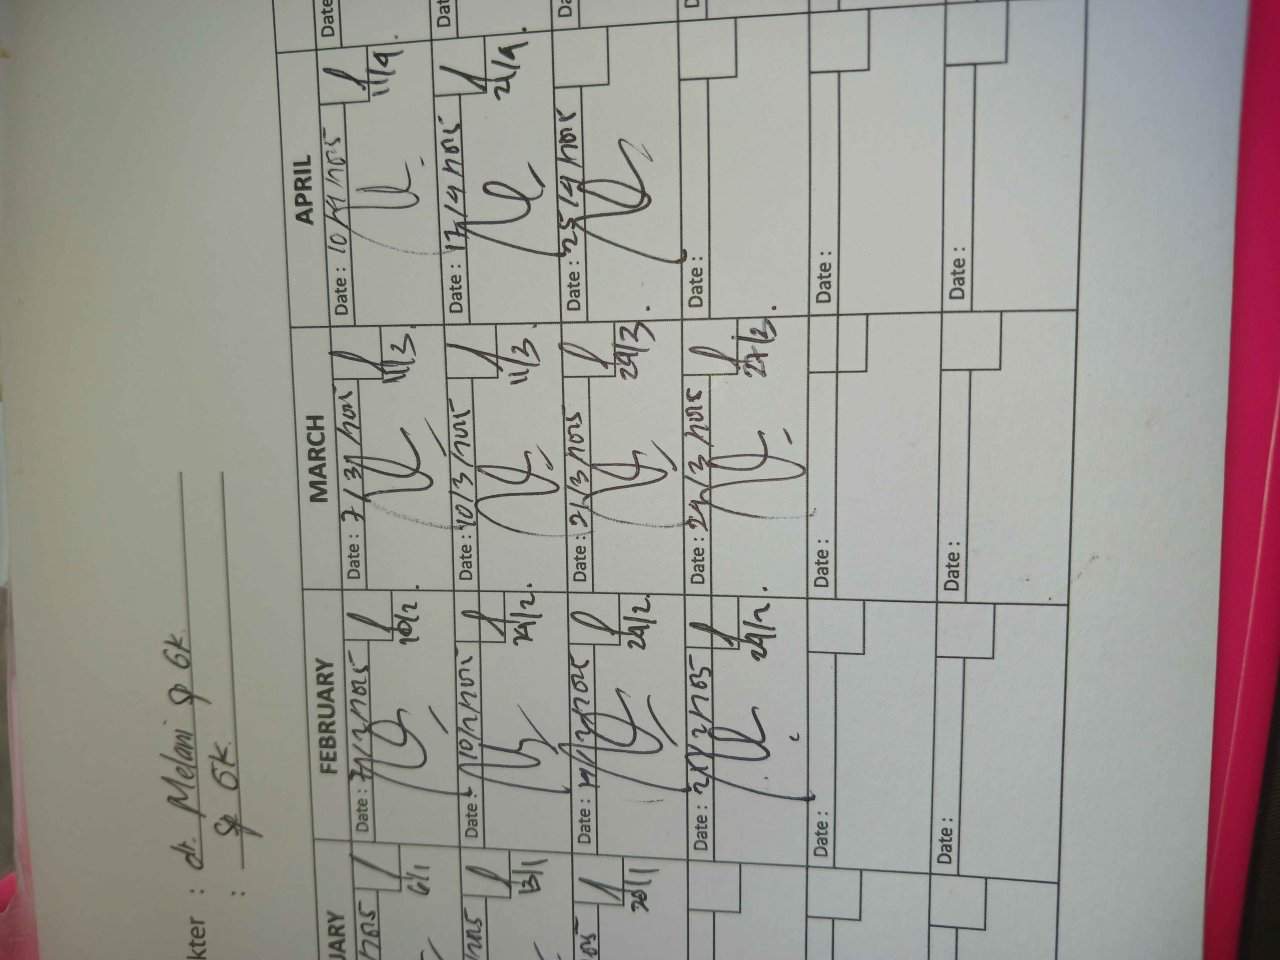 kter : dr. Melani Sp GK
: Sp GK
UARY FEBRUARY MARCH APRIL
Date : 7/2/2025 Date : 7/3/2025 Date : 10/4/2025
6/1 10/2. 11/3. 11/4.
Date : 10/2/2025 Date : 10/3/2025 Date : 17/4/2025
13/1 24/2. 11/3. 21/4.
Date : Date : 21/3/2025 Date : 25/4/2025
20/1 24/2. 24/3.
Date : 21/2/2025 Date : 24/3/2025 Date :
24/2. 27/3.
Date : Date : Date :
Date : Date : Date :